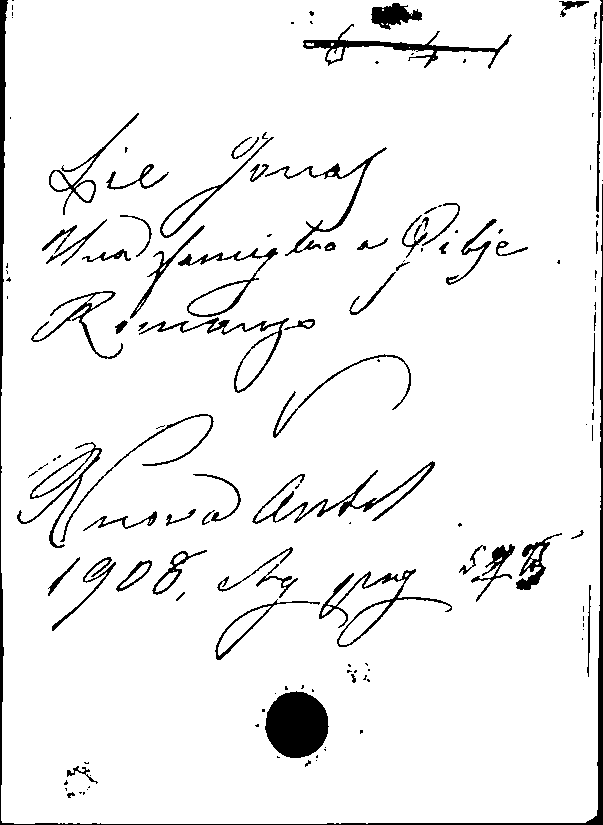 6.4.1
Lie Jonas
Una famiglia a Gilje
Romanzo
Nuova Antol
1908, Ag pag